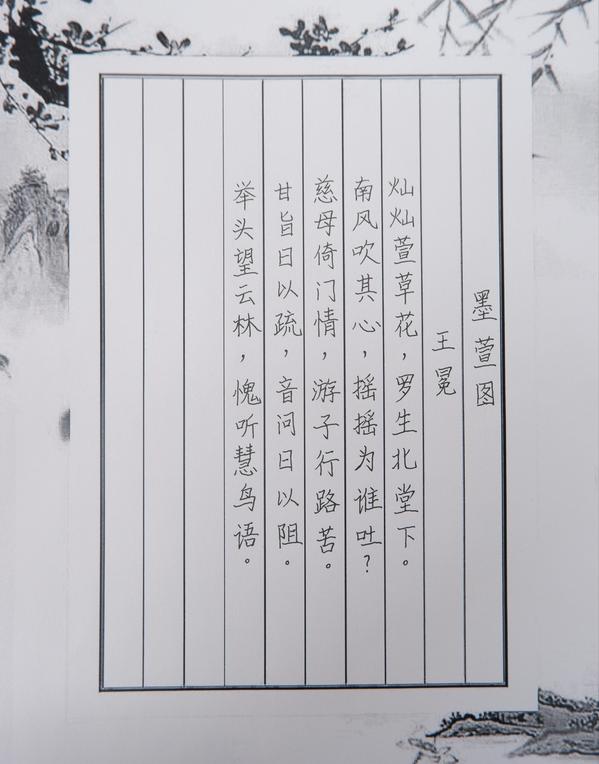 墨萱图
王冕
灿灿萱草花，罗生北堂下。
南风吹其心，摇摇为谁吐？
慈母倚门情，游子行路苦。
甘旨日以疏，音问日以阻。
举头望云林，愧听慧鸟语。